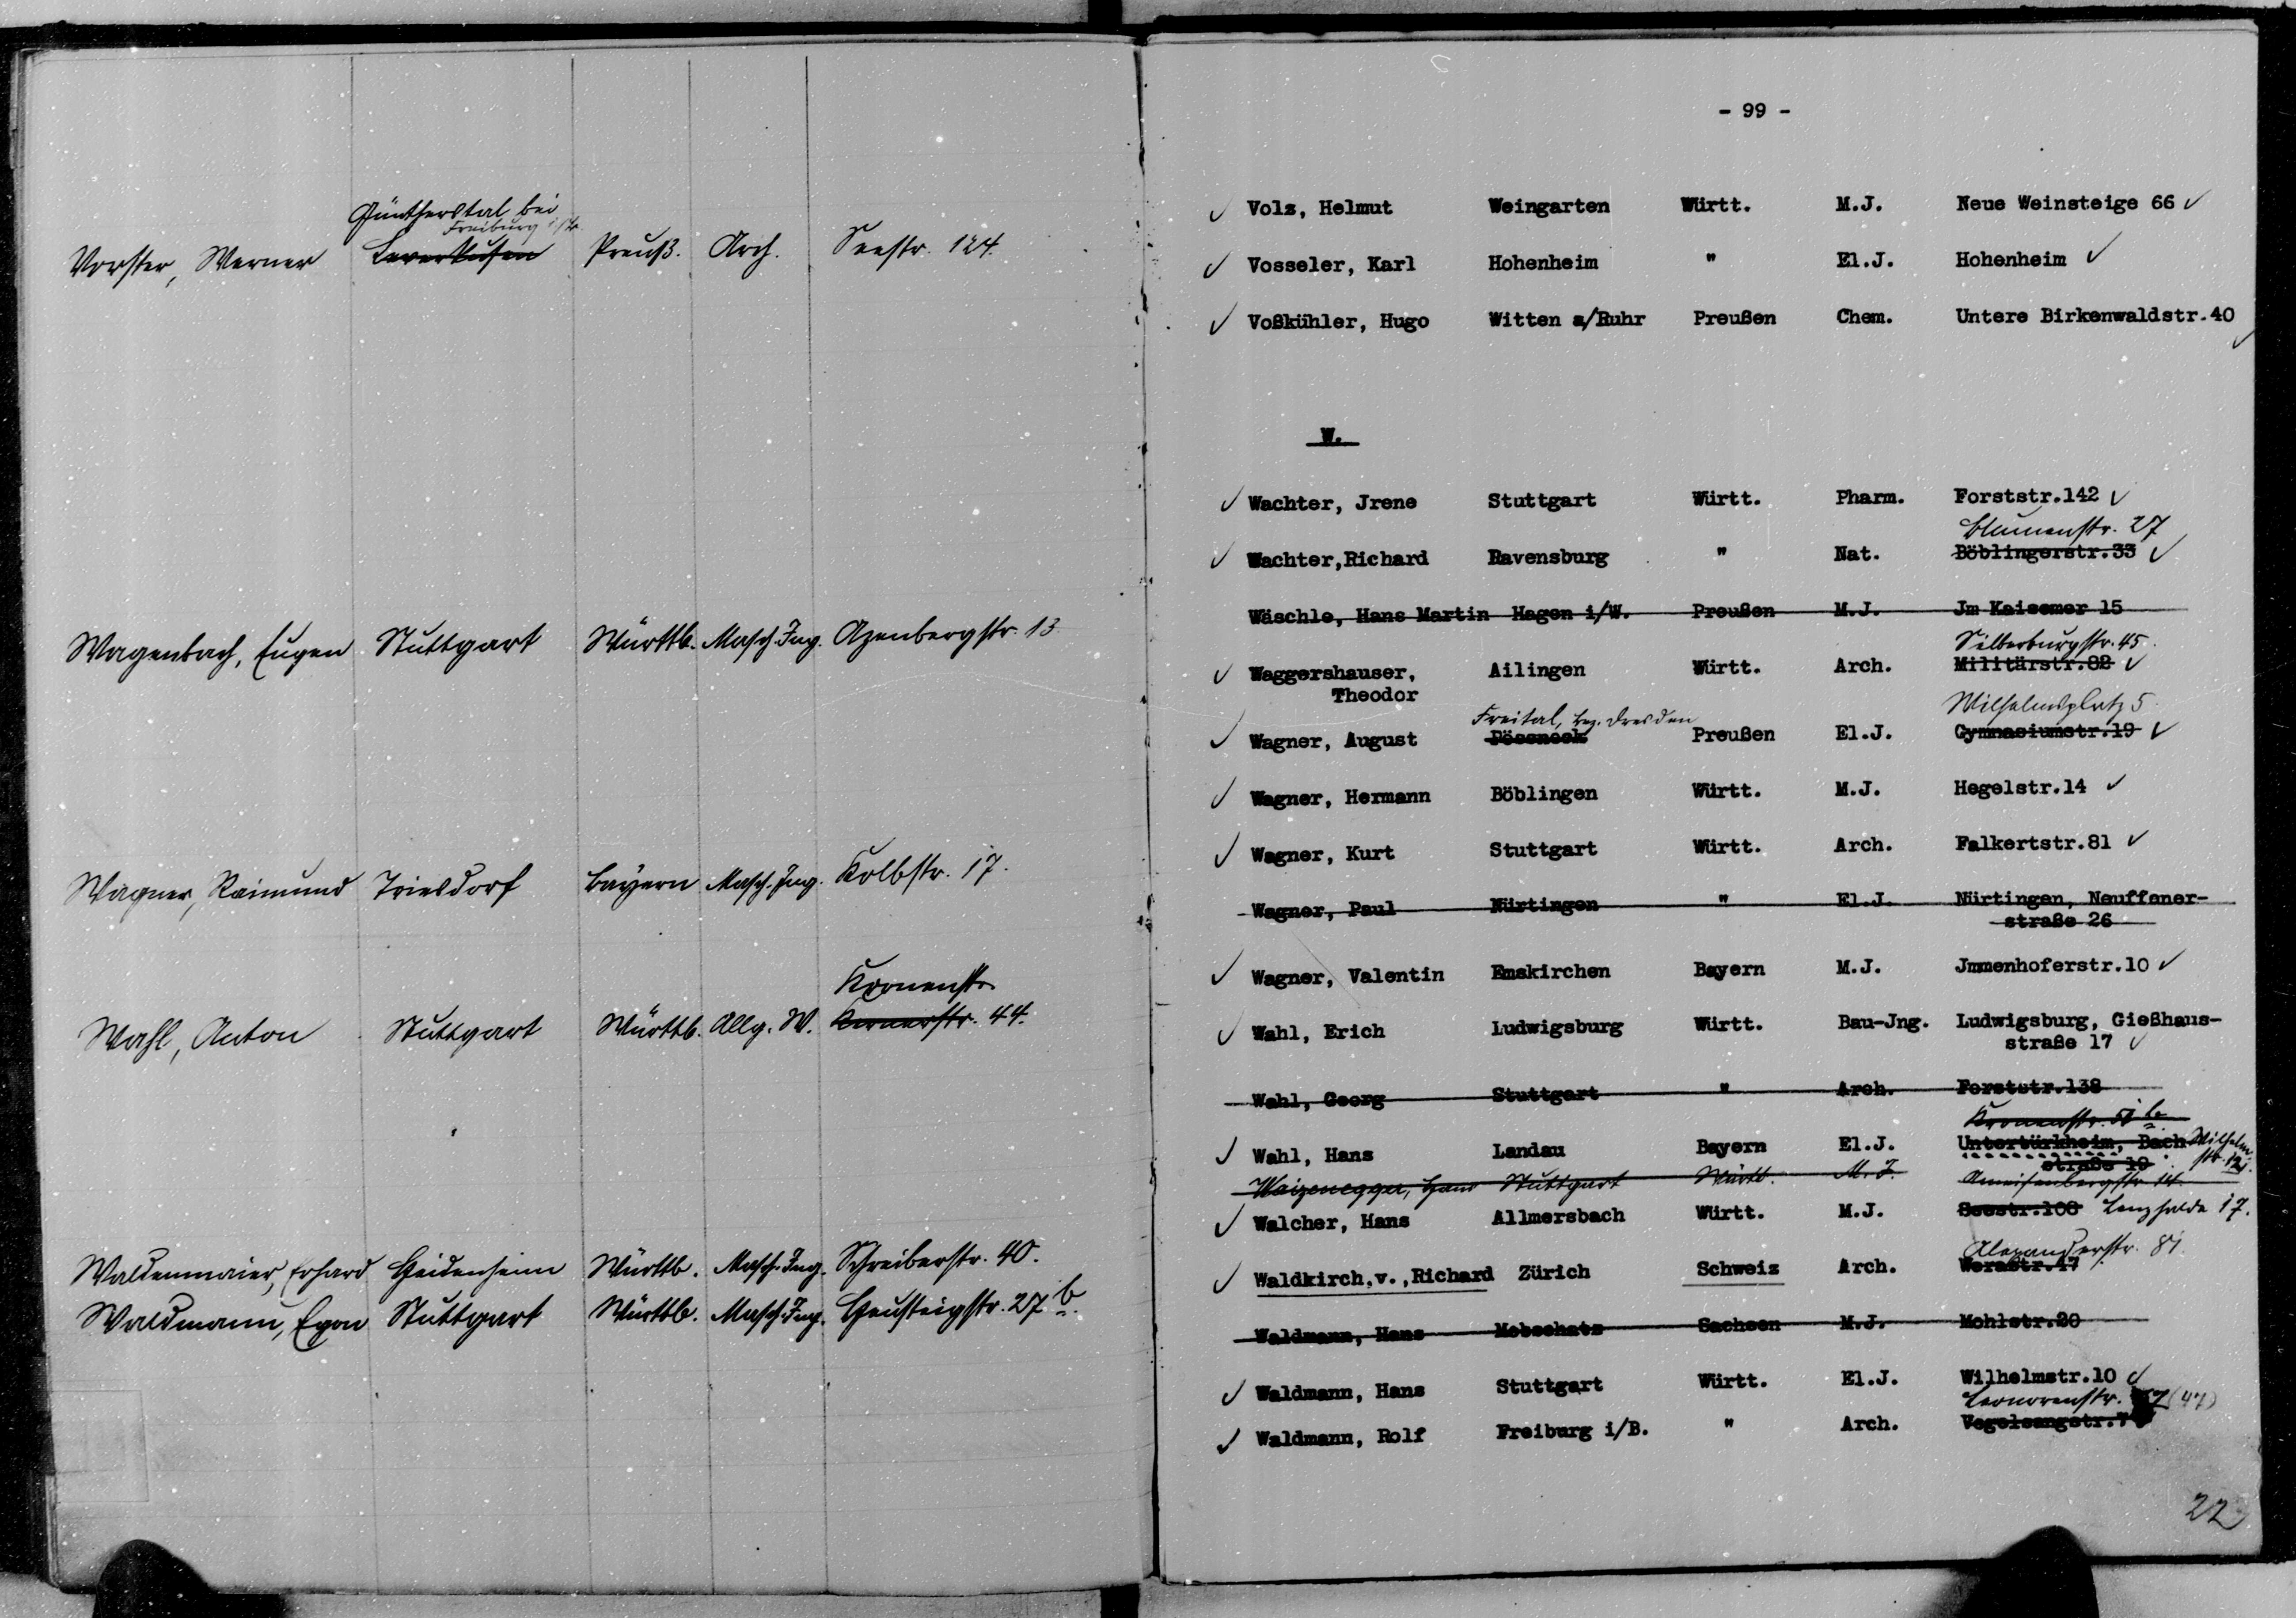 Günthersthal bei
Freiburg i/Br.
Vorster, Werner Leverkusen Preuß. Arch. Seestr. 124.
Wagenbach, Eugen Stuttgart Württb. Masch. Ing. Azenbergstr. 13
Wagner, Raimund Triesdorf Bayern Masch. Ing. Kolbstr. 17.
Kronenstr.
Wahl, Anton Stuttgart Württb. Allg. W. Kernerstr. 44.
Waldenmaier, Erhard Heidenheim Württb. Masch. Ing. Schreiberstr. 40.
Waldmann, Egon Stuttgart Württb. Masch. Ing. Heusteigstr. 27 b.
- 99 -
Volz, Helmut Weingarten Württ. M.J. Neue Weinsteige 66
Vosseler, Karl Hohenheim " El.J. Hohenheim
Voßkühler, Hugo Witten a/Ruhr Preußen Chem. Untere Birkenwaldstr.40
W.
Wachter, Jrene Stuttgart Württ. Pharm. Forststr.142
Blumenstr. 27
Wachter,Richard Ravensburg " Nat. Böblingerstr.33
Wäschle, Hans Martin Hagen i/W. Preußen M.J. Jm Kaisemer 15
Silberburgstr. 45.
Waggershauser, Ailingen Württ. Arch. Militärstr.82
Theodor
Wilhelmsplatz 5.
Freital, bez. Dresden
Wagner, August Pössneck Preußen El.J. Gymnasiumstr.19
Wagner, Hermann Böblingen Württ. M.J. Hegelstr.14
Wagner, Kurt Stuttgart Württ. Arch. Falkertstr.81
Wagner, Paul Nürtingen " El.J. Nürtingen, Neuffener-
straße 26
Wagner, Valentin Emskirchen Bayern M.J. Jmmenhoferstr.10
Wahl, Erich Ludwigsburg Württ. Bau-Jng. Ludwigsburg, Gießhaus-
straße 17
Wahl, Georg Stuttgart " Arch. Forststr.138
Kronenstr. 51 b.
Wahl, Hans Landau Bayern El.J. Untertürkheim, Bach Wilhelm
straße 19 str. 12.
Waizenegger, Hans Stuttgart Württ. M. J. Ameisenbergstr. 14.
Walcher, Hans Allmersbach Württ. M.J. Seestr.100 Lenzhalde 17.
Alexanderstr. 81.
Waldkirch,v.,Richard Zürich Schweiz Arch. Werastr.47
Waldmann, Hans Mobschatz Sachsen M.J. Mohlstr.20
Waldmann, Hans Stuttgart Württ. El.J. Wilhelmstr.10
Leonorenstr. (47)
Waldmann, Rolf Freiburg i/B. " Arch. Vogelsangstr.7
22